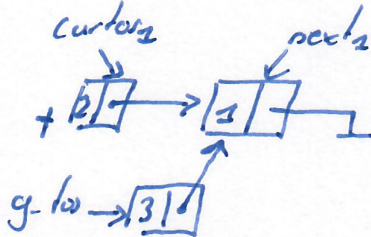 curtos1 next1
2 1
g-tos 3